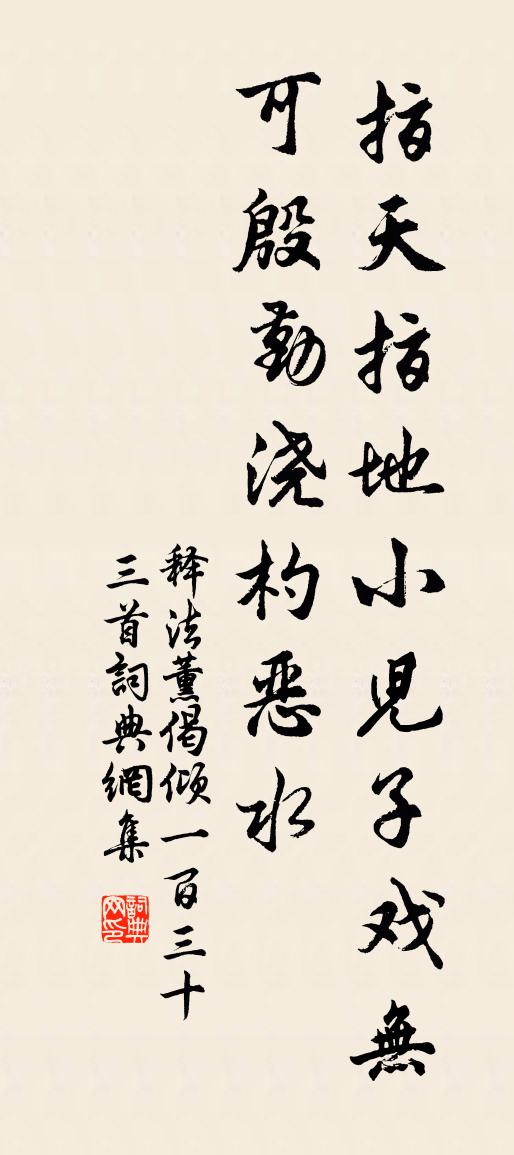 指天指地小児子戏無
可殷勤浇杓恶水
释法薰偈倾一百三十
三首詞典網集
詞典网印